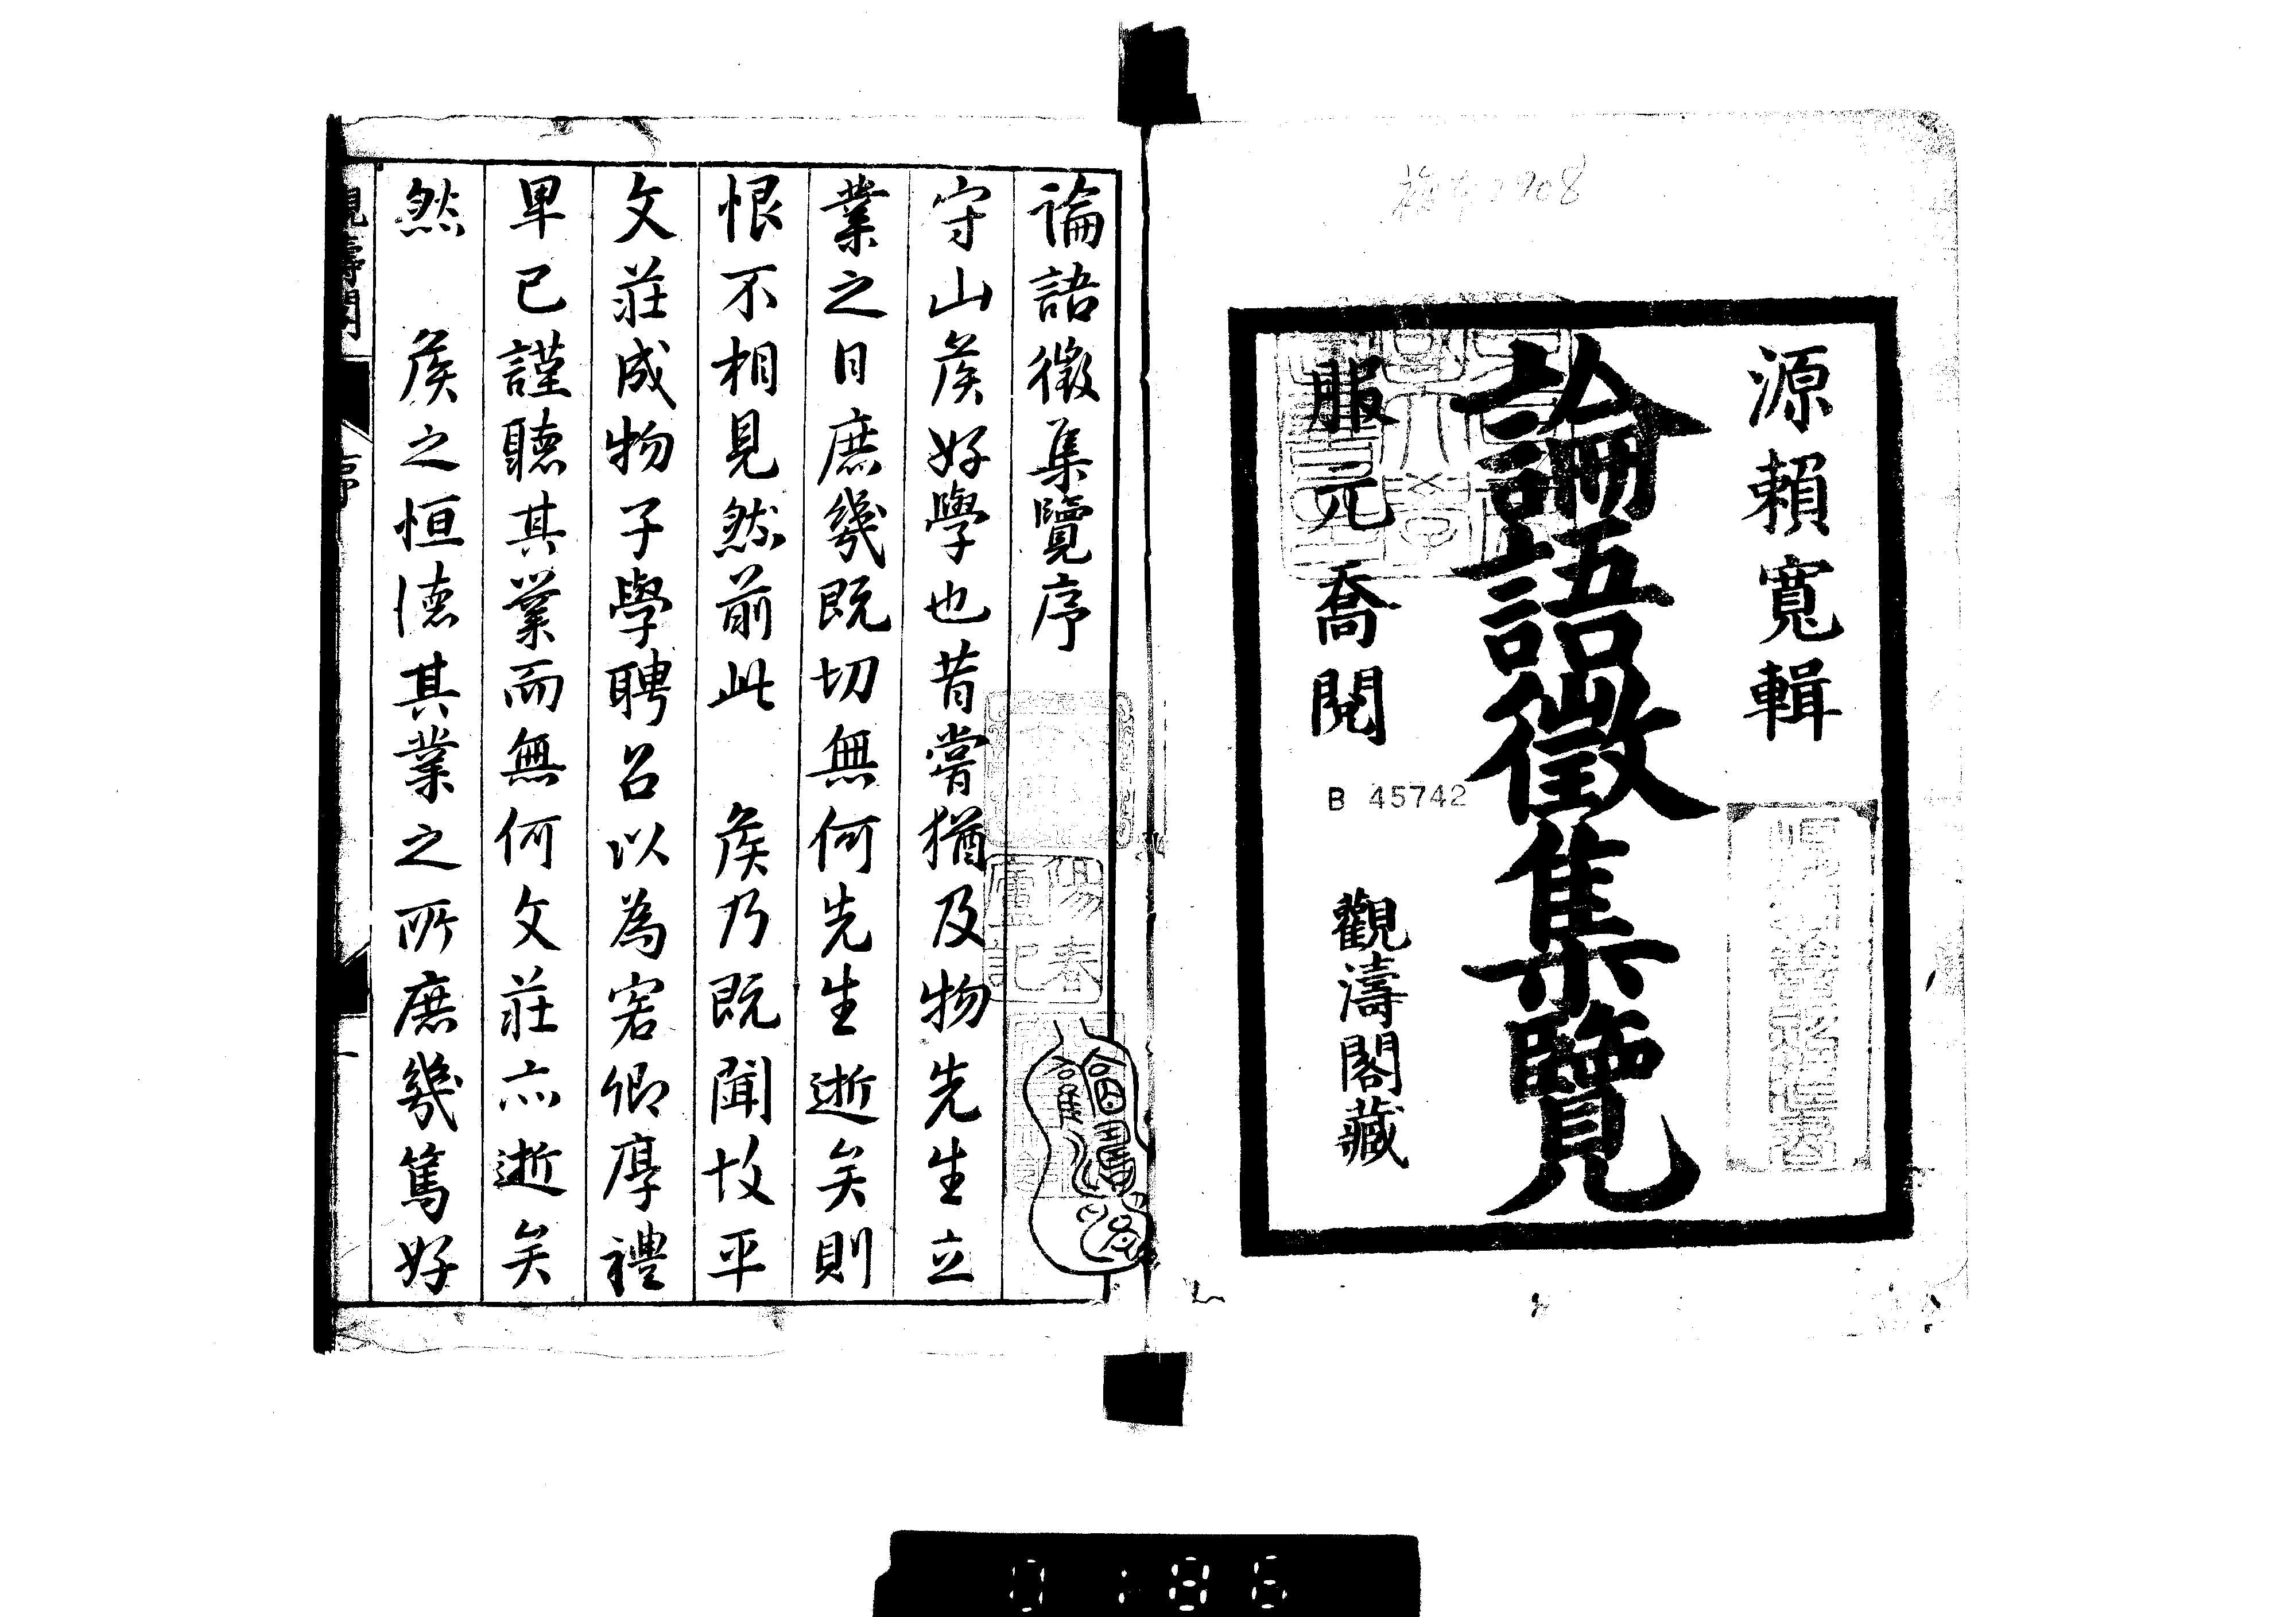 源頼寛輯
論語徵集覽
服元喬閱
B 45742
觀濤閣藏
論語徵集覽序
守山矦好學也昔嘗猶及物先生立
業之日庶幾既切無何先生逝矣則
恨不相見然前此　矦乃既聞故平
文莊成物子學聘召以為客卿厚禮
卑已謹聽其業而無何文莊亦逝矣
然　矦之恒德其業之所庶幾篤好
序
一